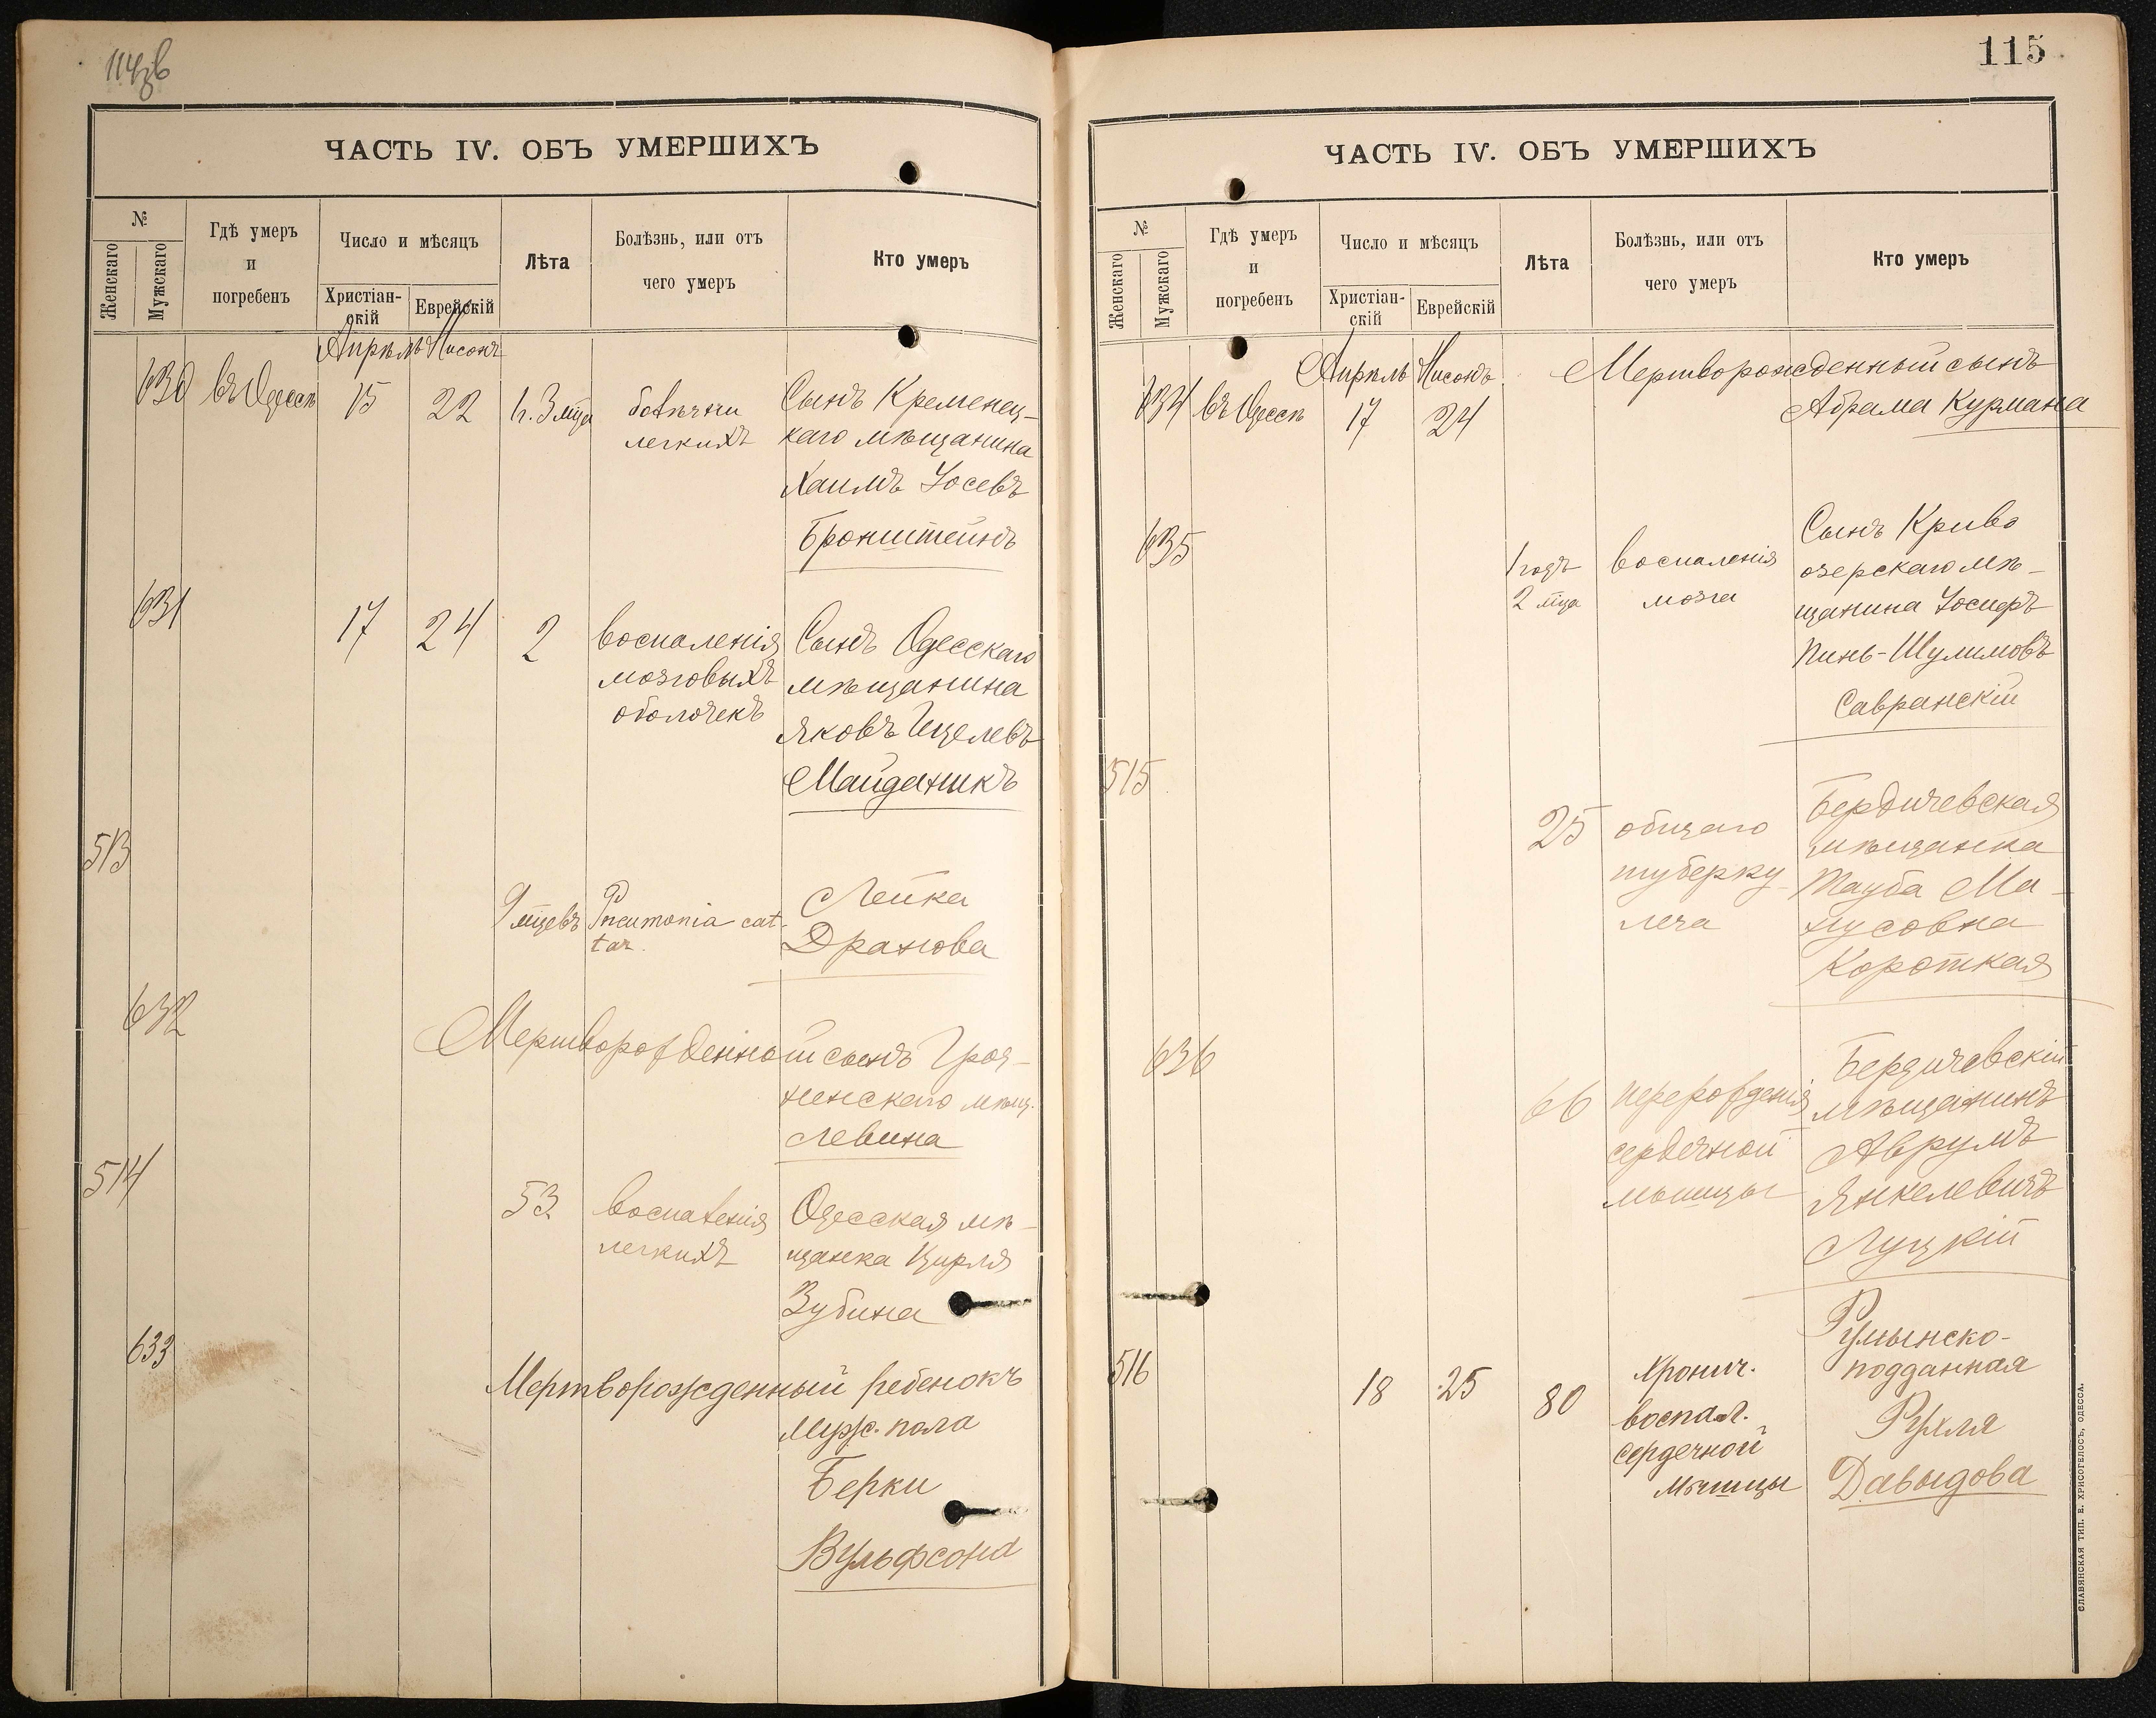 114об
ЧАСТЬ IV. ОБЪ УМЕРШИХЪ
№
Женскаго
Мужскаго
Гдѣ умеръ
и
погребенъ
Число и мѣсяцъ
Христіан-
скій
Еврейскій
Лѣта
Болѣзнь, или отъ
чего умеръ
Кто умеръ
Апрѣль Нисонъ
630 въ Одессѣ 15 22 1г. 3 мца
легкихъ
Сынъ Кременец-
каго мѣщанина
Хаимъ Іосевъ
Бронштейнъ
631 17 24 2
воспаленія
мозговыхъ
оболочекъ
Сынъ Одесскаго
мѣщанина
Яковъ Ицелевъ
Майданикъ
513
9 мцевъ
Pneumonia cat-
tar.
Лейка
Дранова
632
Мертворожденной сынъ
ненскаго мѣщ.
Левина
514
53
воспаленія
легкихъ
Одесская мѣ-
щанка Цирля
Зубина
633
Мертворожденный ребенокъ
Муж. пола
Берки
Вульфсона
115
ЧАСТЬ IV. ОБЪ УМЕРШИХЪ
№
Женскаго
Мужскаго
Гдѣ умеръ
и
погребенъ
Число и мѣсяцъ
Христіан-
скій
Еврейскій
Лѣта
Болѣзнь, или отъ
чего умеръ
Кто умеръ
Апрѣль Нисонъ
634 въ Одессѣ 17 24
Мертворожденный сынъ
Абрама Курмана
635
1 годъ
2 мца
воспаленія
мозга
Сынъ Криво
озерскаго мѣ-
щанина Іосифъ
Пинь-Шулимовъ
Савранскій
515
25
общаго
туберку-
леза
Бердичевская
мѣщанка
Тауба Ма-
нусовна
Короткая
636
66
перерожденія
сердечной
мышцы
Бердичевскій
мѣщанинъ
Аврумъ
Янкелевичъ
Луцкій
516 18 25 80
Хронич.
воспал.
сердечной
Мышцы
Румынско-
подданная
Рухля
Давыдова
СЛАВЯНСКАЯ ТИП. Е. ХРИСОГЕЛОСЪ, ОДЕССА.